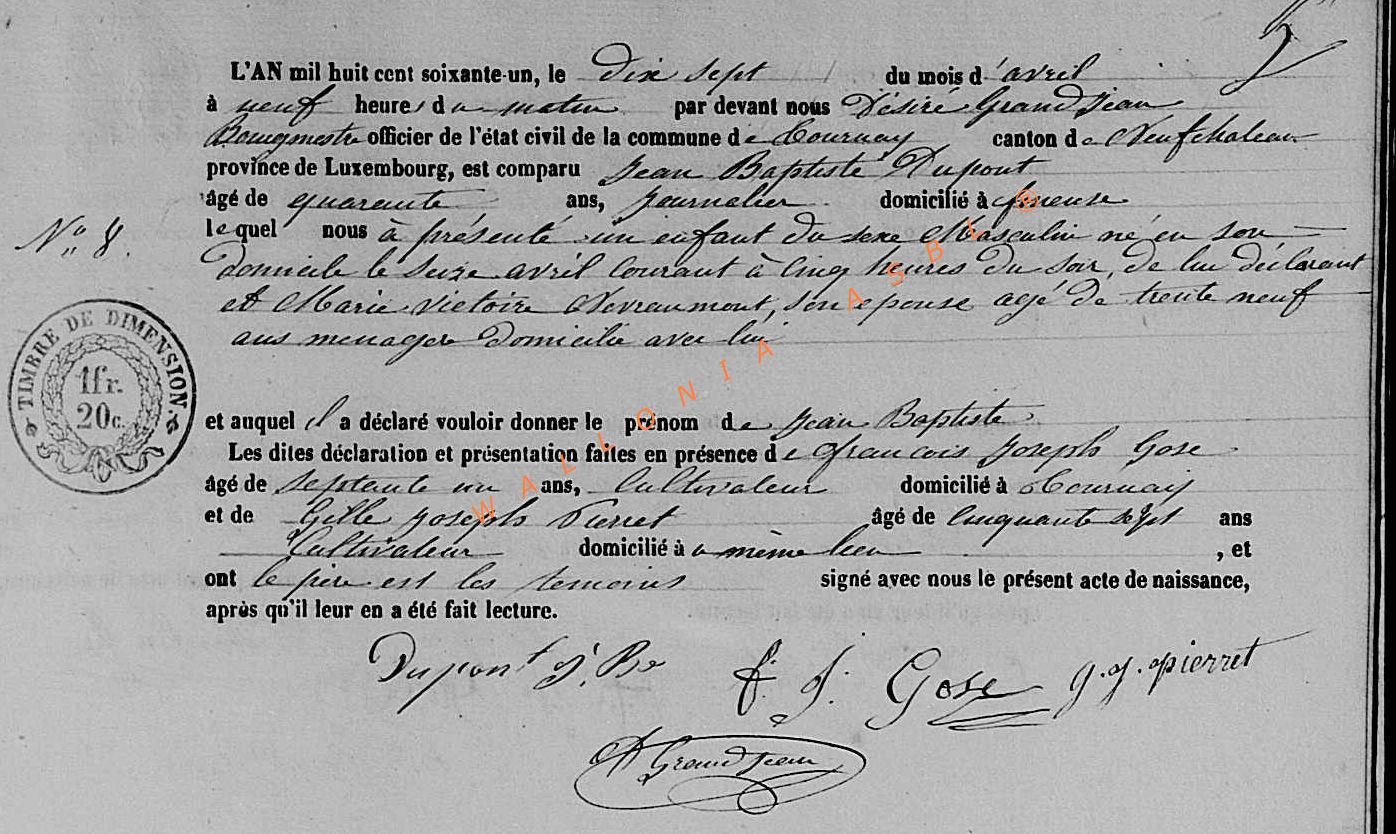 L'AN mil huit cent soixante-un, le dix sept du mois d'avril
à neuf heures du matin par devant nous Désiré Grandjean
Bourgmestre officier de l'état civil de la commune de Tournay canton de Neufchateau
province de Luxembourg, est comparu Jean Baptiste Dupont
âgé de quarante ans, journalier domicilié à
N° 8. lequel nous à présenté un enfant du sexe Masculin né en son
domicile le seize avril courant à cinq heures du soir, de lui déclarant
et Marie Victoire Nevraumont, son epouse agé de trente neuf
ans menagere domicilié avec lui
TIMBRE DE DIMENSION
1fr.
20c.
et auquel il a déclaré vouloir donner le prénom de Jean Baptiste
Les dites déclaration et présentation faites en présence de francois Joseph Gose
âgé de septante un ans, Cultivateur domicilié à Tournay
et de Gille Joseph Pierret âgé de cinquante sept ans
Cultivateur domicilié à u même lieu , et
ont le père est les temoins signé avec nous le présent acte de naissance,
après qu'il leur en a été fait lecture.
Dupont J. Bte f. J. Gose g. j. pierret
D Grandjean
WALLONIA ASBL ®